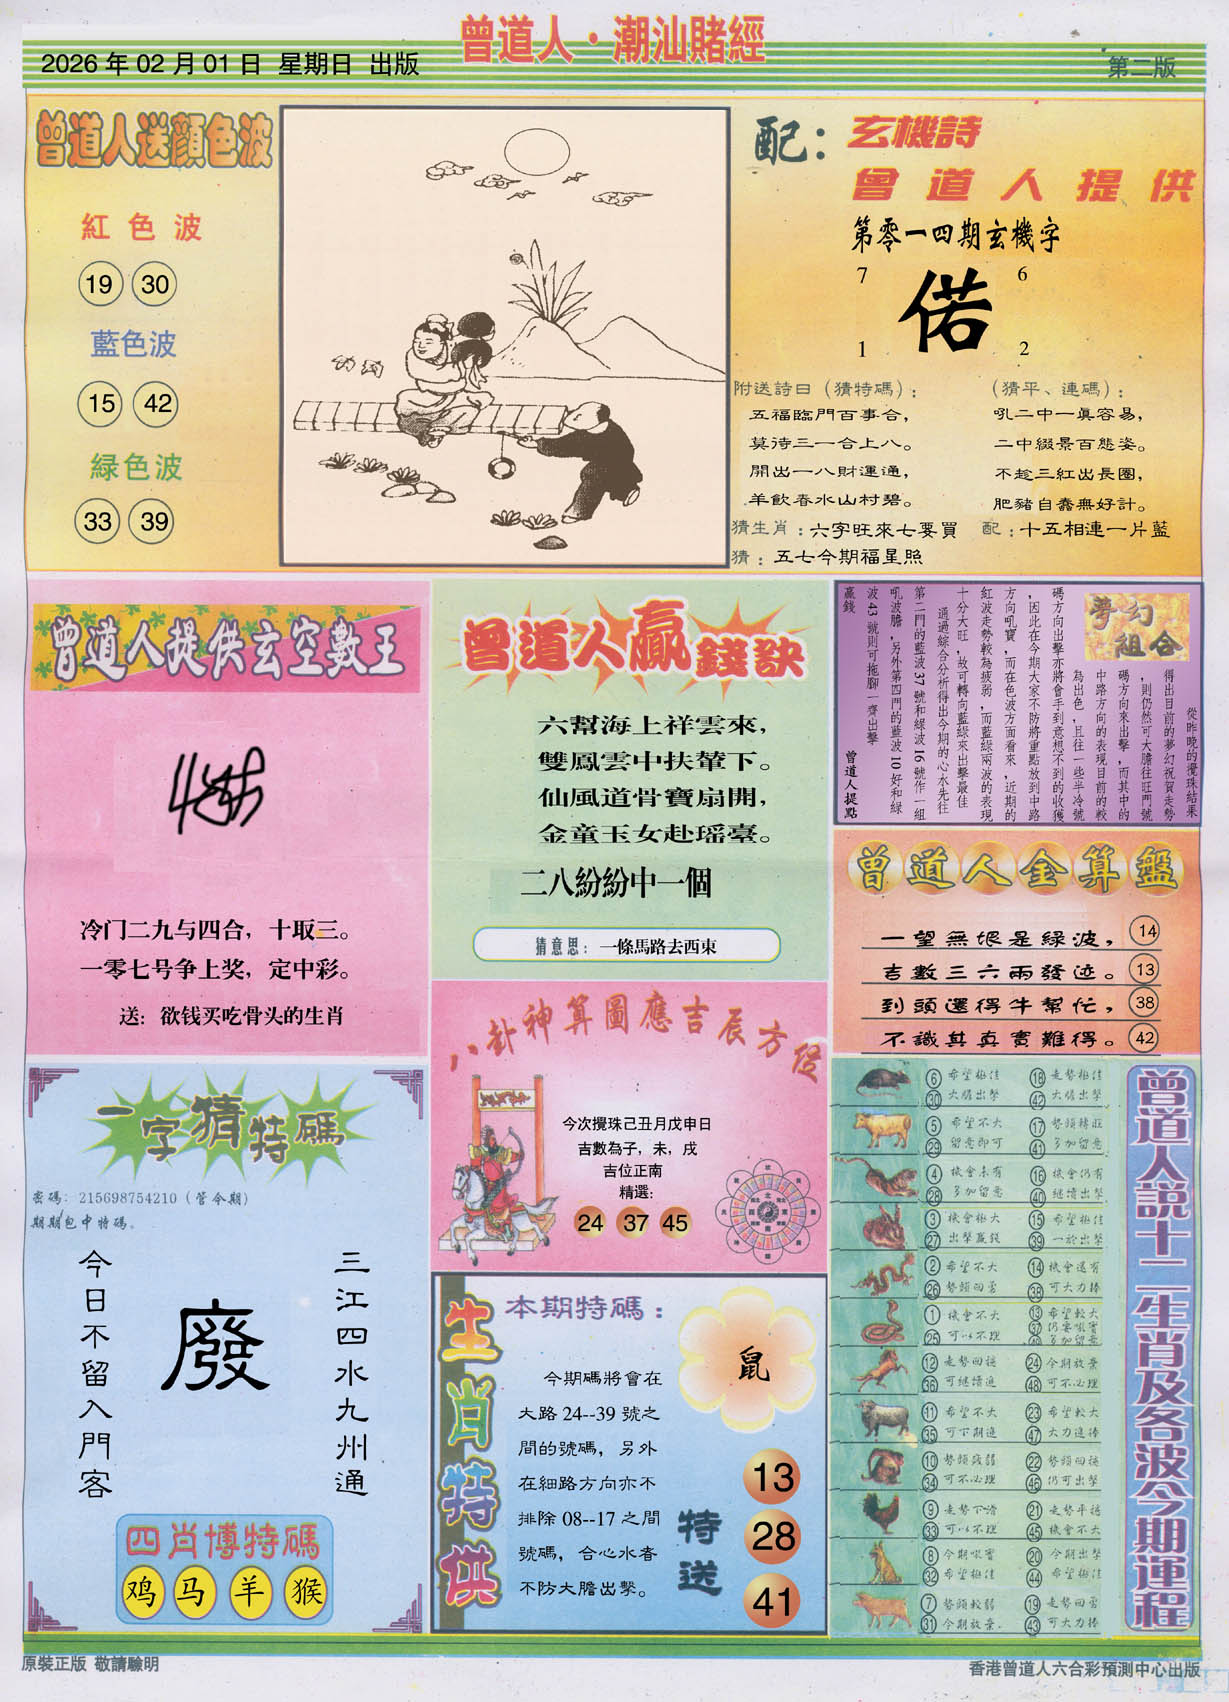 曾道人·潮汕賭經
2026年02月01日 星期日 出版
第二版
曾道人送顏色波
紅色波
19 30
藍色波
15 42
緑色波
33 39
配：玄機詩
曾道人提供
第零一四期玄機字
7 6
偌
1 2
附送詩曰（猜特碼）：
五福臨門百事合，
莫待三一合上八。
開出一八財運通，
羊飲春水山村碧。
（猜平、連碼）：
吼二中一眞容易，
二中綴景百態姿。
不趁三紅出長圈，
肥豬自蠢無好計。
猜生肖：六字旺來七要買
配：十五相連一片藍
猜：五七今期福星照
曾道人提供玄空數王
冷门二九与四合，十取三。
一零七号争上奖，定中彩。
送：欲钱买吃骨头的生肖
曾道人贏錢訣
六幫海上祥雲來，
雙鳳雲中扶輦下。
仙風道骨寶扇開，
金童玉女赴瑶臺。
二八紛紛中一個
猜意思：一條馬路去西東
夢幻組合
從昨晚的攪珠結果
得出目前的夢幻祝賀走勢
，則仍然可大膽往旺門號
碼方向來出擊，而其中的
中路方向的表現目前的較
為出色，且往一些半冷號
碼方向出擊亦將會手到意想不到的收獲
，因此在今期大家不防將重點放到中路
方向吼寶，而在色波方面看來，近期的
紅波走勢較為疲弱，而藍綠兩波的表現
十分大旺，故可轉向藍綠來出擊最佳
通過綜合分析得出今期的心水先往
第二門的藍波37號和綠波16號作一組
吼波膽，另外第四門的藍波10好和綠
波43號則可拖腳一齊出擊
贏錢
曾道人提點
曾道人金算盤
一望無垠是緑波， 14
吉數三六兩發迹。 13
到頭還得牛幫忙， 38
不識其真實難得。 42
八卦神算圖應吉辰方位
今次攪珠己丑月戊申日
吉數為子，未，戌
吉位正南
精選：
24 37 45
一字猜特碼
密碼：215698754210（管今期）
期期包中特碼。
三江四水九州通
廢
今日不留入門客
四肖博特碼
鸡 马 羊 猴
生肖特供
本期特碼：
鼠
今期碼將會在
大路24--39號之
間的號碼，另外
在細路方向亦不
排除08--17之間
號碼，合心水者
不防大膽出擊。
特送
13
28
41
曾道人說十二生肖及各波今期運程
6 希望極佳 18 走勢極佳
30 大膽出擊 42 大膽出擊
5 希望不大 17 勢頭轉旺
29 留意即可 41 多加留意
4 機會未有 16 機會仍有
28 多加留意 40 繼續出擊
3 機會極大 15 希望極佳
27 出擊贏錢 39 一於出擊
2 希望不大 14 機會還有
26 勢頭回勇 38 可大力捧
1 機會不大 13 希望較大
25 可以不理 37 仍要吼實
49 多加留意
12 走勢回穩 24 今期放棄
36 可繼續追 48 可不必理
11 希望不大 23 希望較大
35 可下期追 47 大力追捧
10 勢頭疲弱 22 勢頭回穩
34 可不必理 46 仍可出擊
9 走勢下滑 21 走勢平穩
33 可以不理 45 機會不大
8 今期吼實 20 今期出擊
32 希望極佳 44 希望極佳
7 勢頭較弱 19 走勢回勇
31 今期放棄. 43 可大力捧
原裝正版 敬請驗明
香港曾道人六合彩預測中心出版